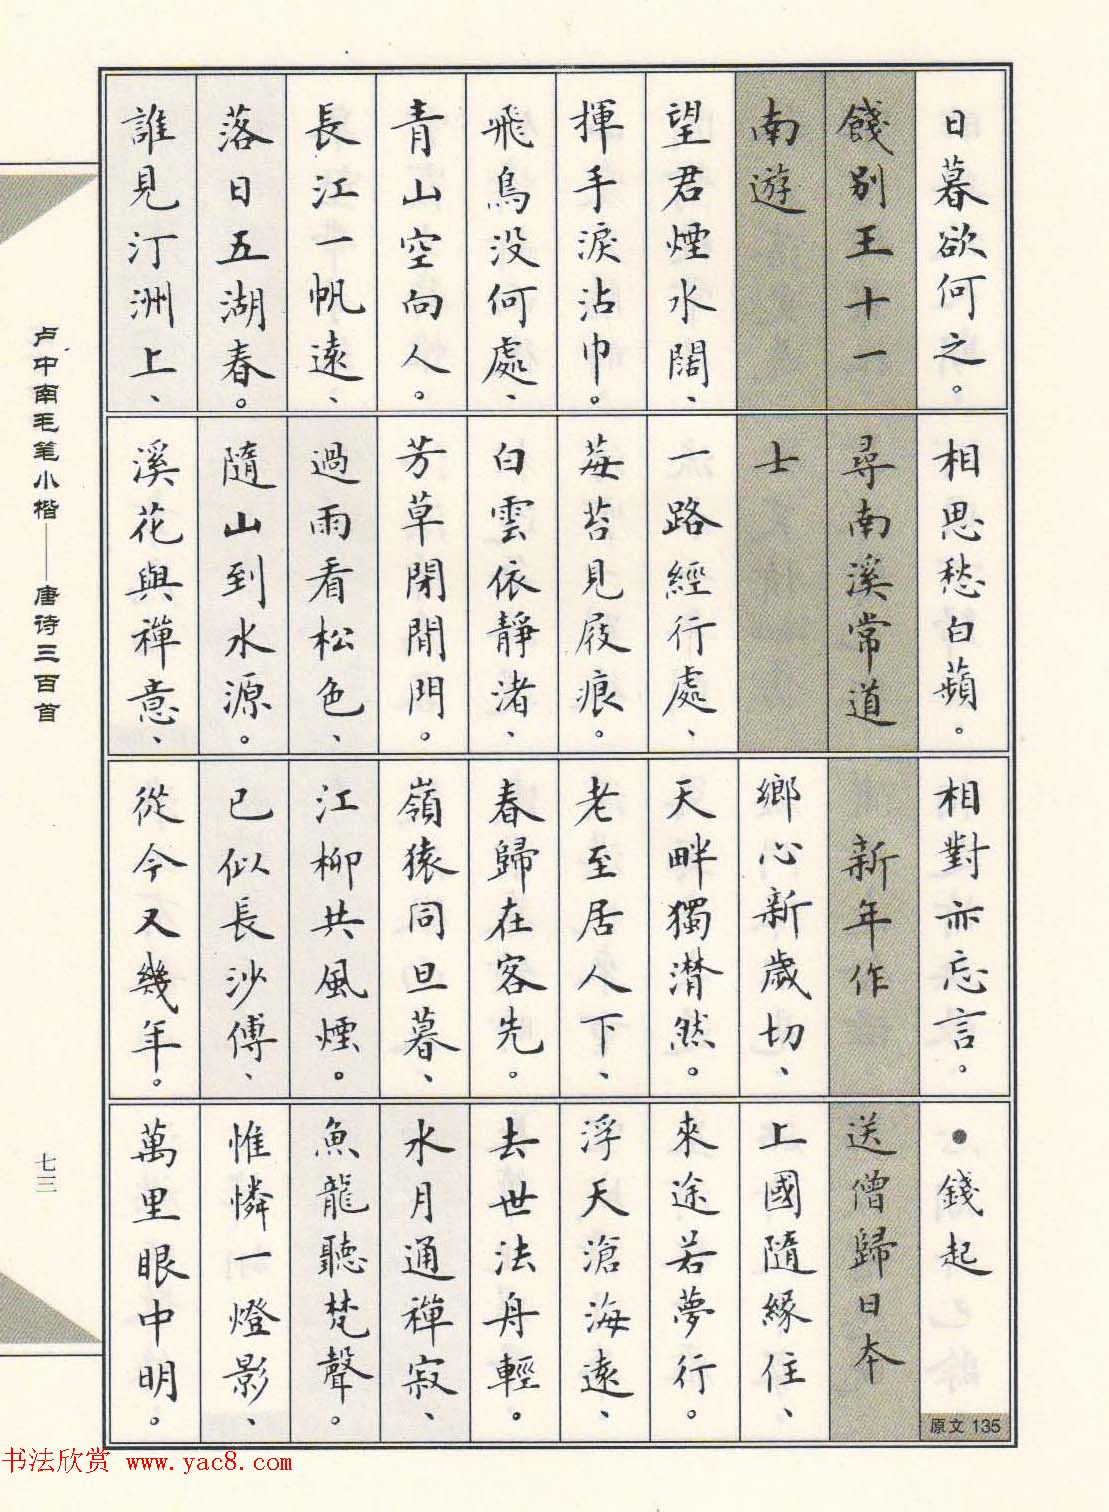 日暮欲何之。
餞別王十一
南遊
望君煙水闊、
揮手淚沾巾。
飛鳥没何處、
青山空向人。
長江一帆遠、
落日五湖春。
誰見汀洲上、
相思愁白蘋。
尋南溪常道
士
一路經行處、
莓苔見屐痕。
白雲依靜渚、
芳草閉閒門。
過雨看松色、
隨山到水源。
溪花與禪意、
相對亦忘言。
新年作
鄉心新歲切、
天畔獨潸然。
老至居人下、
春歸在客先。
嶺猿同旦暮、
江柳共風煙。
已似長沙傅、
從今又幾年。
●錢起
原文 135
送僧歸日本
上國隨緣住、
來途若夢行。
浮天滄海遠、
去世法舟輕。
水月通禪寂、
魚龍聽梵聲。
惟憐一燈影、
萬里眼中明。
卢中南毛笔小楷——唐诗三百首
七三
书法欣赏 www.yac8.com